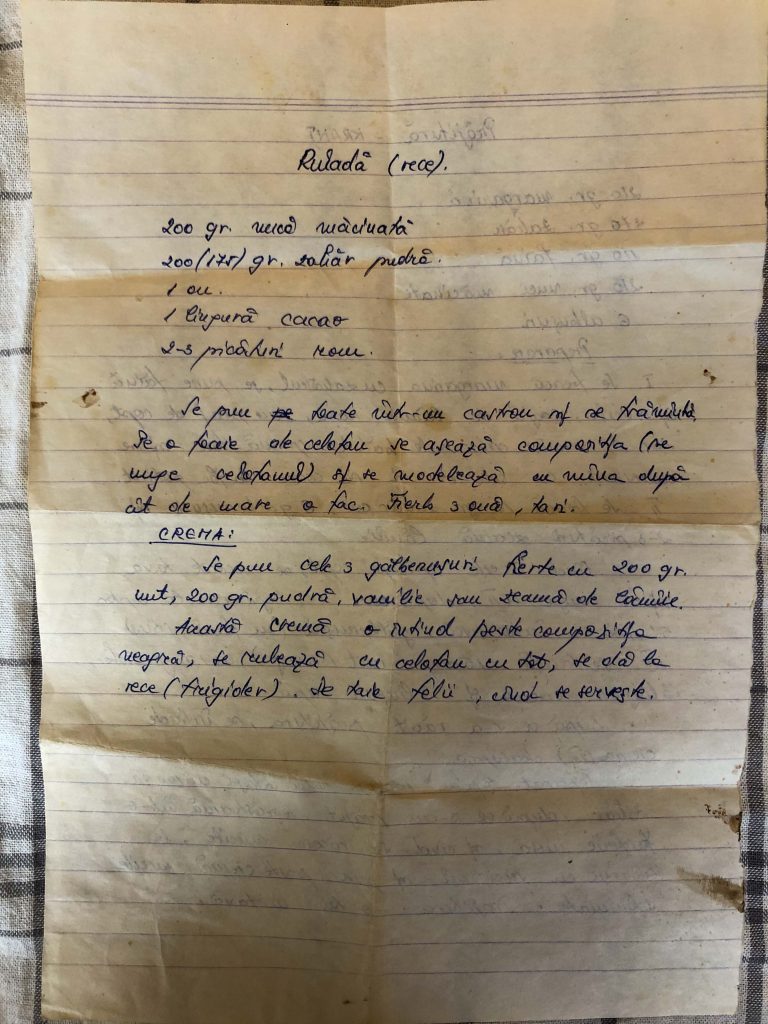 Ruladă (rece).
200 gr. nucă măcinată
200(175) gr. zahăr pudră.
1 ou.
1 lingură cacao
2-3 picături rom.
Se pun toate într-un castron și se frămîntă.
Pe o foaie de celofan se așează compoziția (se
unge celofanul) și se modelează cu mîna după
cît de mare o fac. Fierb 3 ouă, tari.
CREMA:
Se pun cele 3 gălbenușuri fierte cu 200 gr.
unt, 200 gr. pudră, vanilie sau zeamă de lămîie.
Această cremă o întind peste compoziția
neagră, se rulează cu celofan cu tot, se dă la
rece (frigider). Se taie felii, cînd se servește.